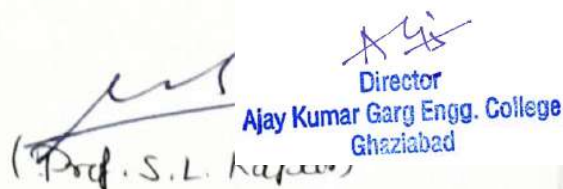 Director
Ajay Kumar Garg Engg. College
Ghaziabad
(Prof. S. L. Kapoor)